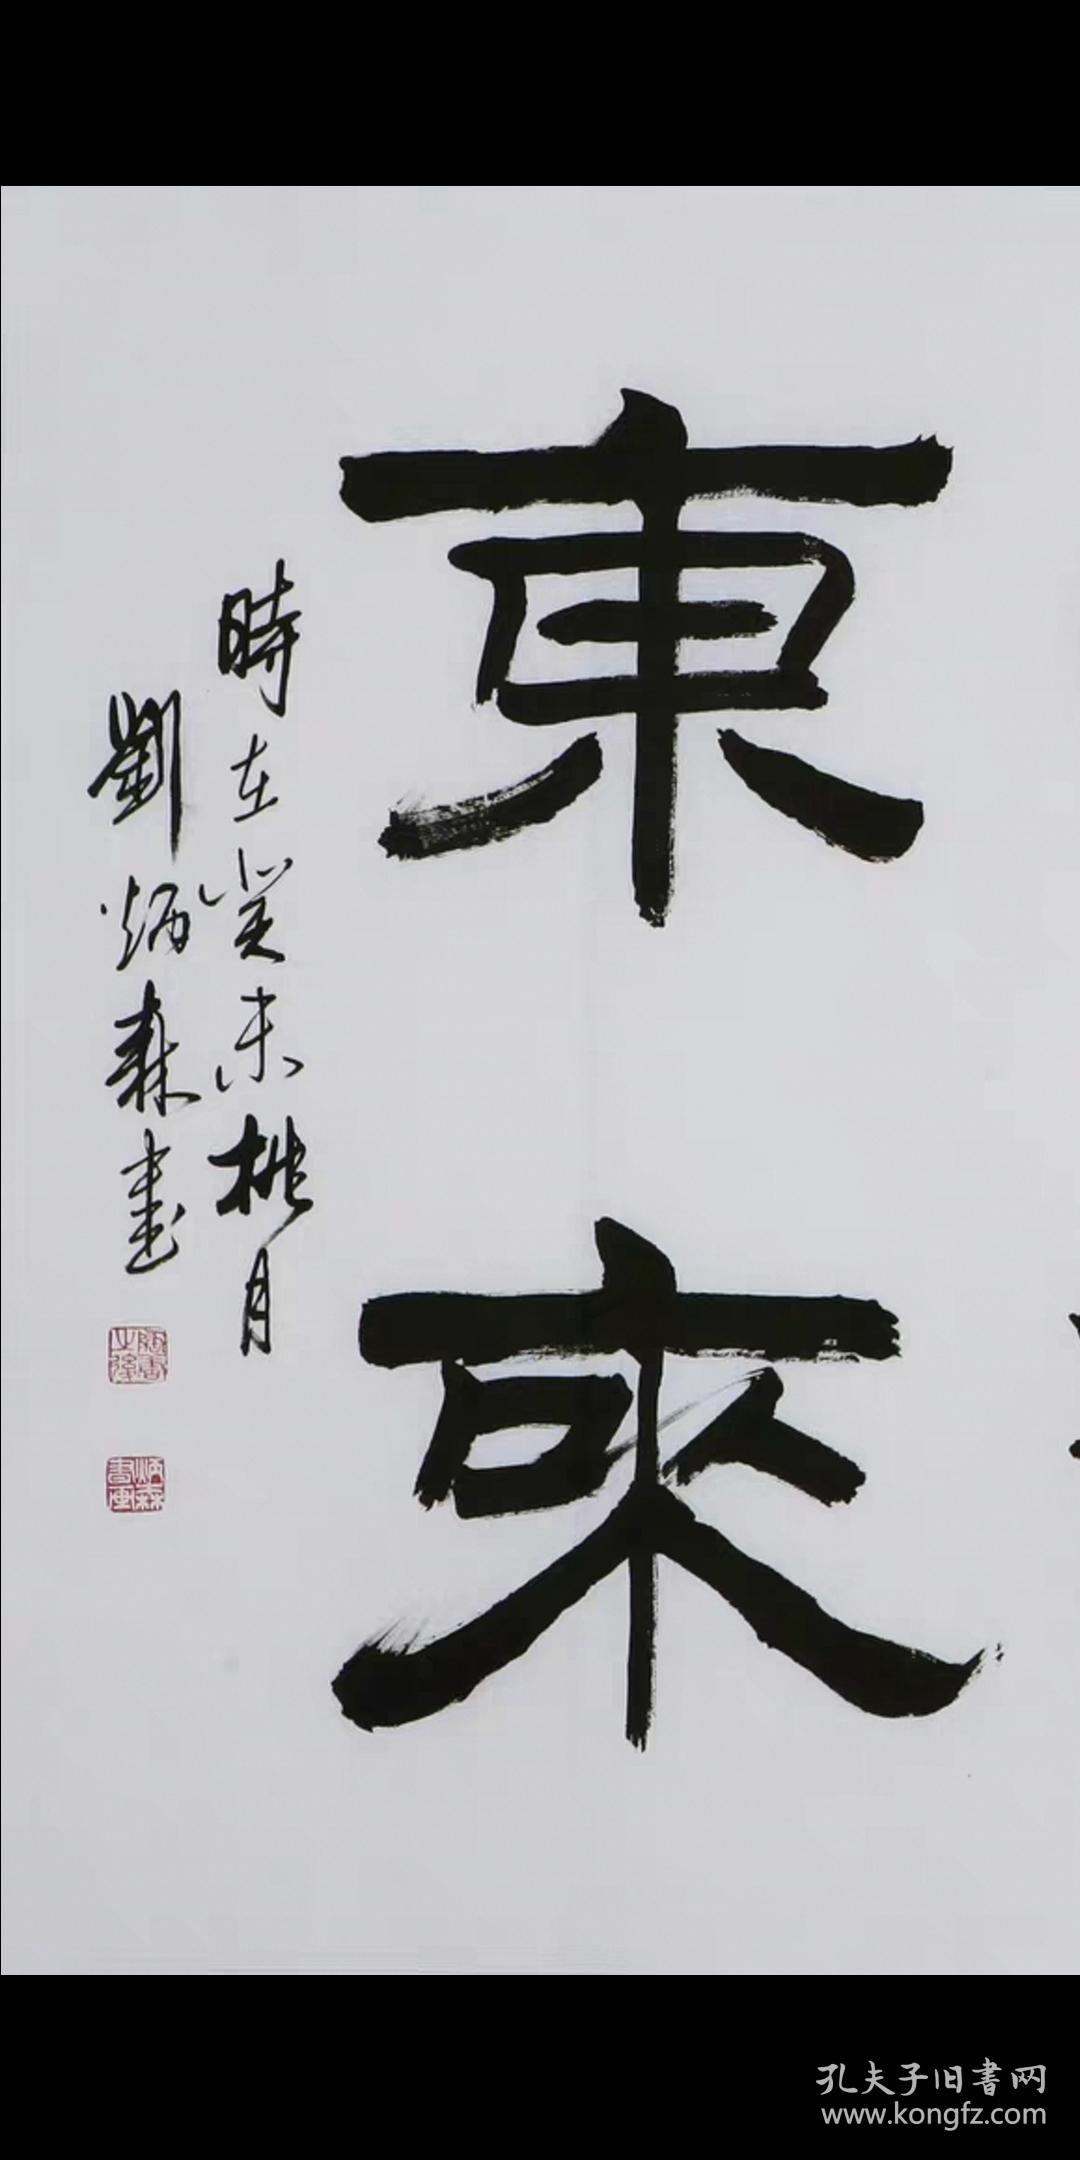 東來
時在癸未桃月
劉炳森書
炳森書画
孔夫子旧書网
www.kongfz.com